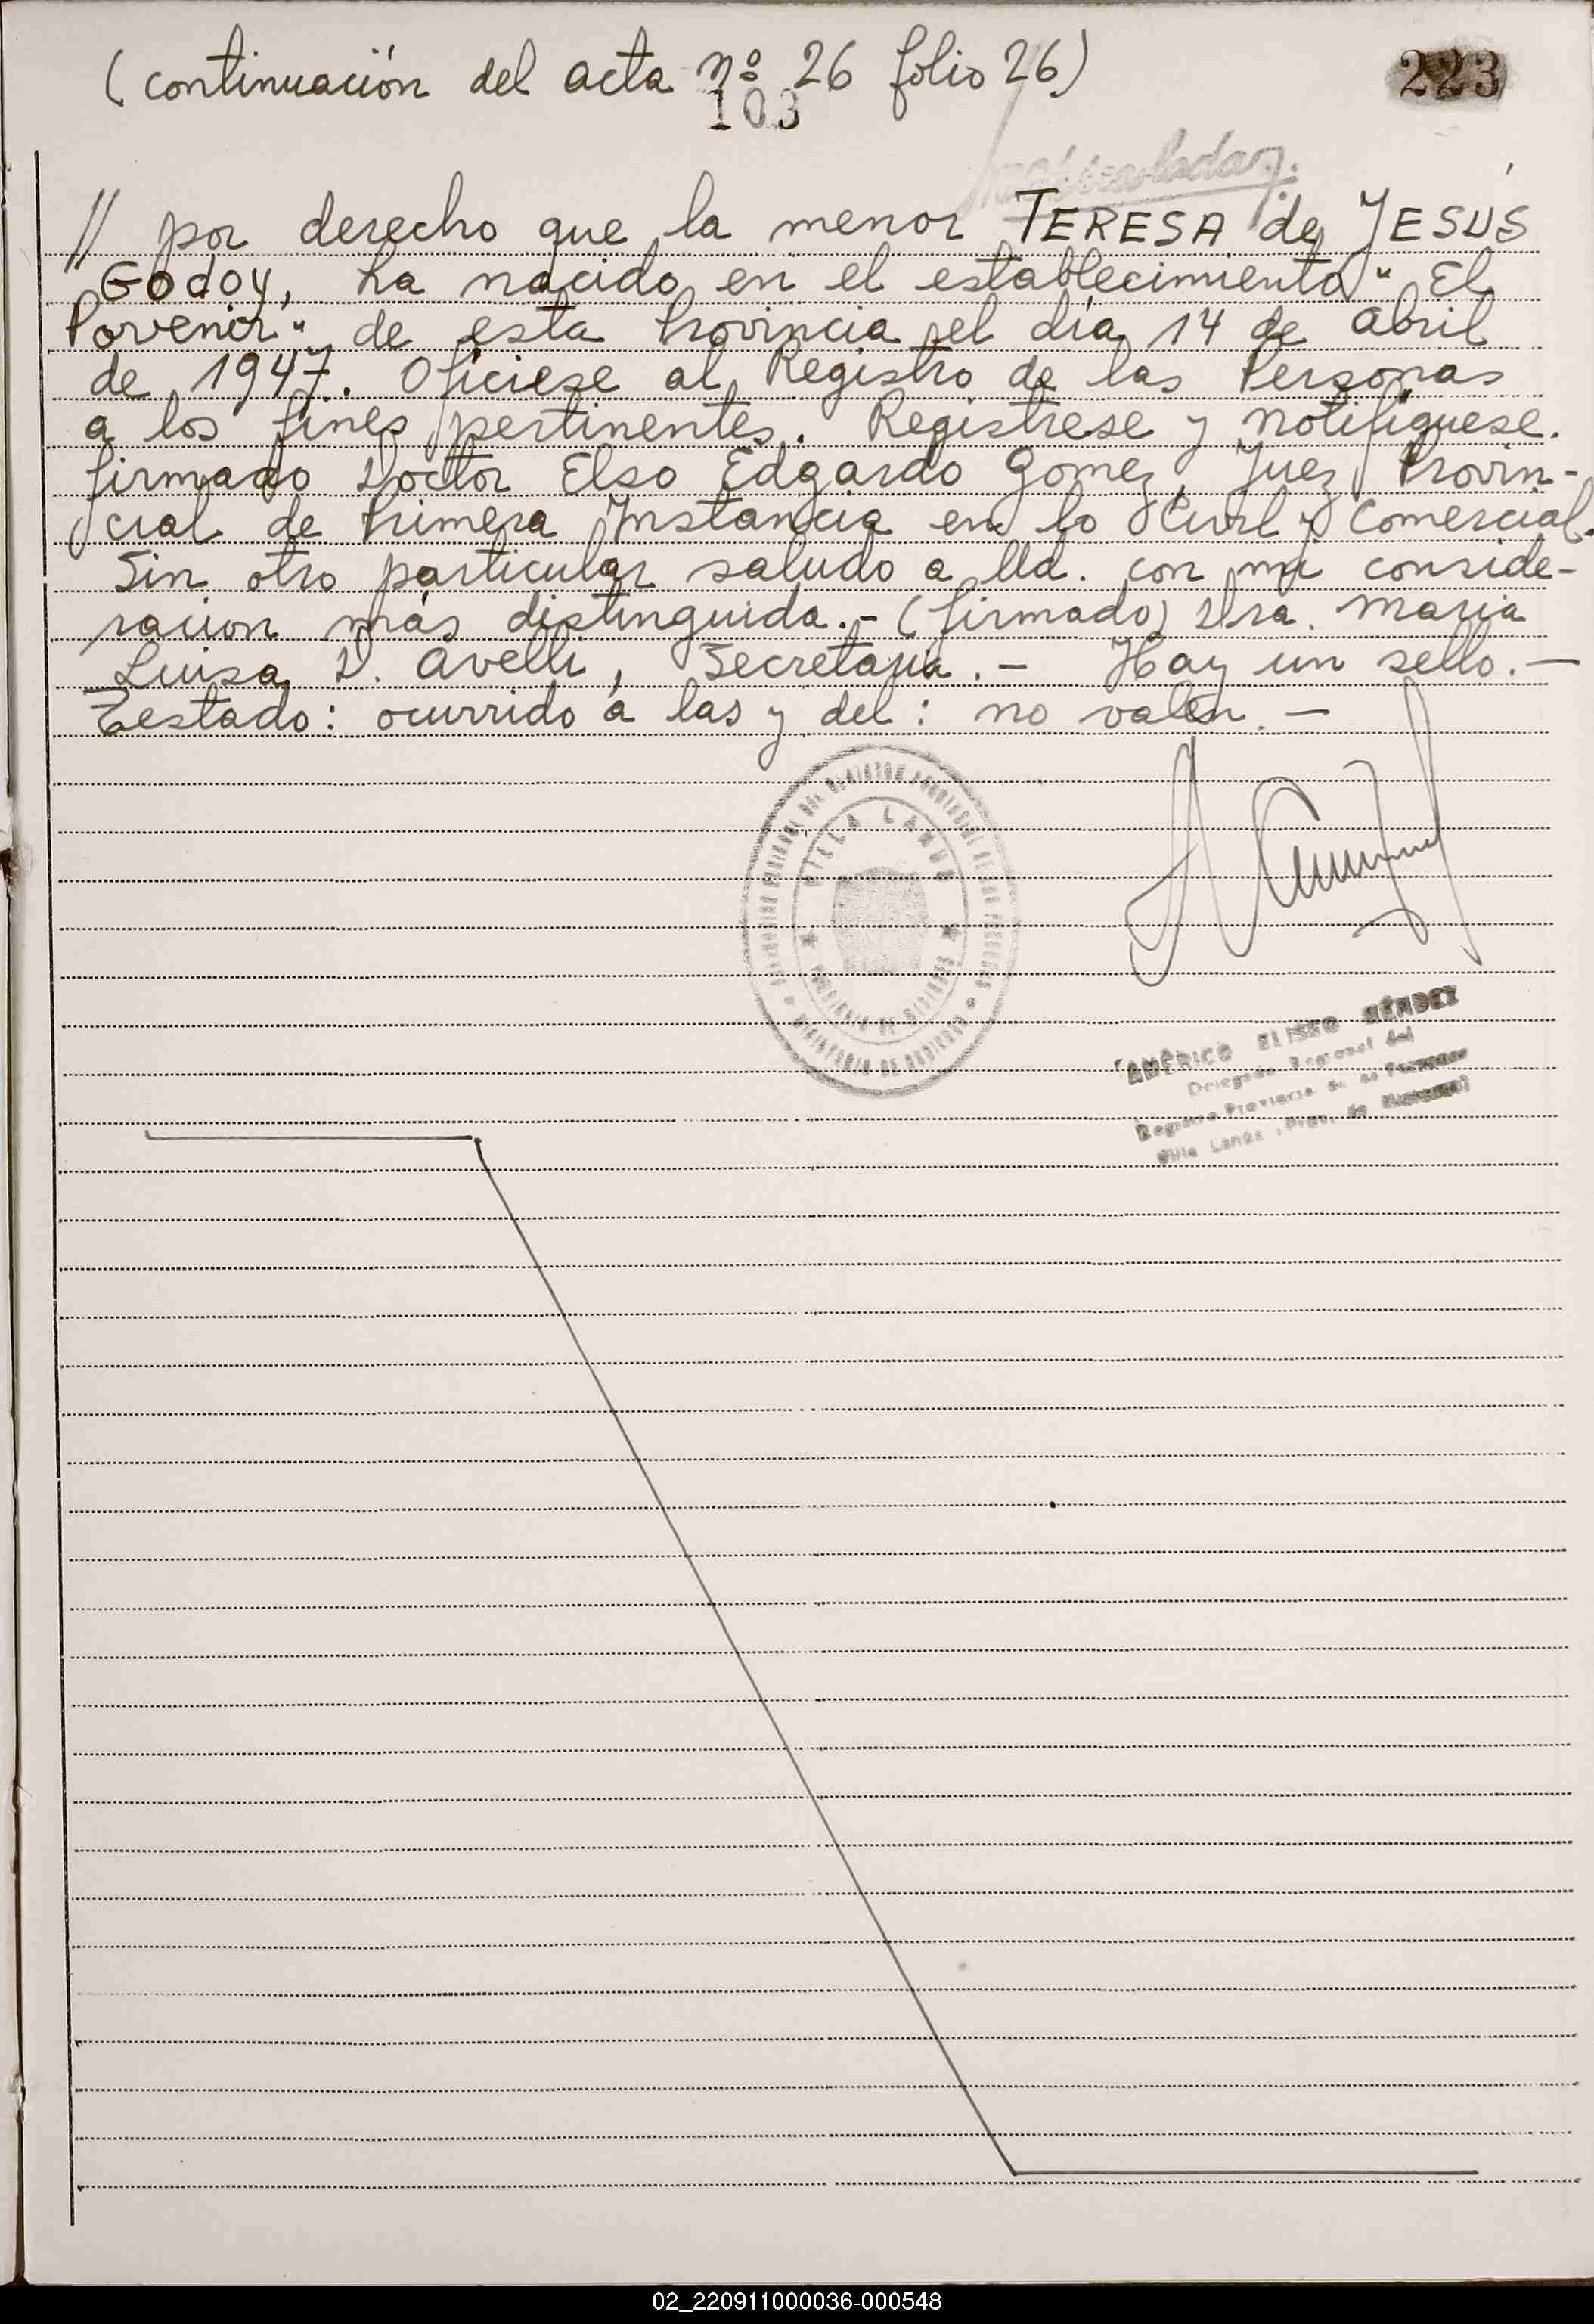 (continuación del acta nº 26 folio 26)
223
103
// por derecho que la menor TERESA de JESUS
Godoy, ha nacido en el establecimiento "El
Porvenir" de esta Provincia el día 14 de abril
de 1947. Ofíciese al Registro de las Personas
a los fines pertinentes. Registrese y notifiquese.
firmado Doctor Elso Edgardo Gomez, Juez Provin-
cial de Primera Instancia en lo Civil y Comercial.
Sin otro particular saludo a Ud. con mi conside-
ración más distinguida.- (firmado) Dra. Maria
Luisa D. Avelli, Secretaria.- Hay un sello.-
Testado: ocurrido a las y del: no valen.-
VILLA LANUS
AMÉRICO ELISEO MÉNDEZ
Delegado Regional del
Registro Provincia de las Personas
Villa Lanús, Prov. de Misiones
02_220911000036-000548